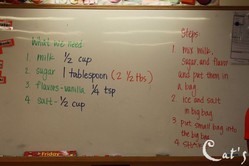 What we need:
1. milk ½ cup
2. sugar 1 tablespoon (2 ½ tbs)
3. flavors-vanilla ¼ tsp
4. salt-½ cup
Steps:
1. mix milk,
sugar, and flavor
and put them in
a bag
2. ice and salt
in big bag
3. put small bag into
the big bag
4. SHAKE
Friday
Cat's